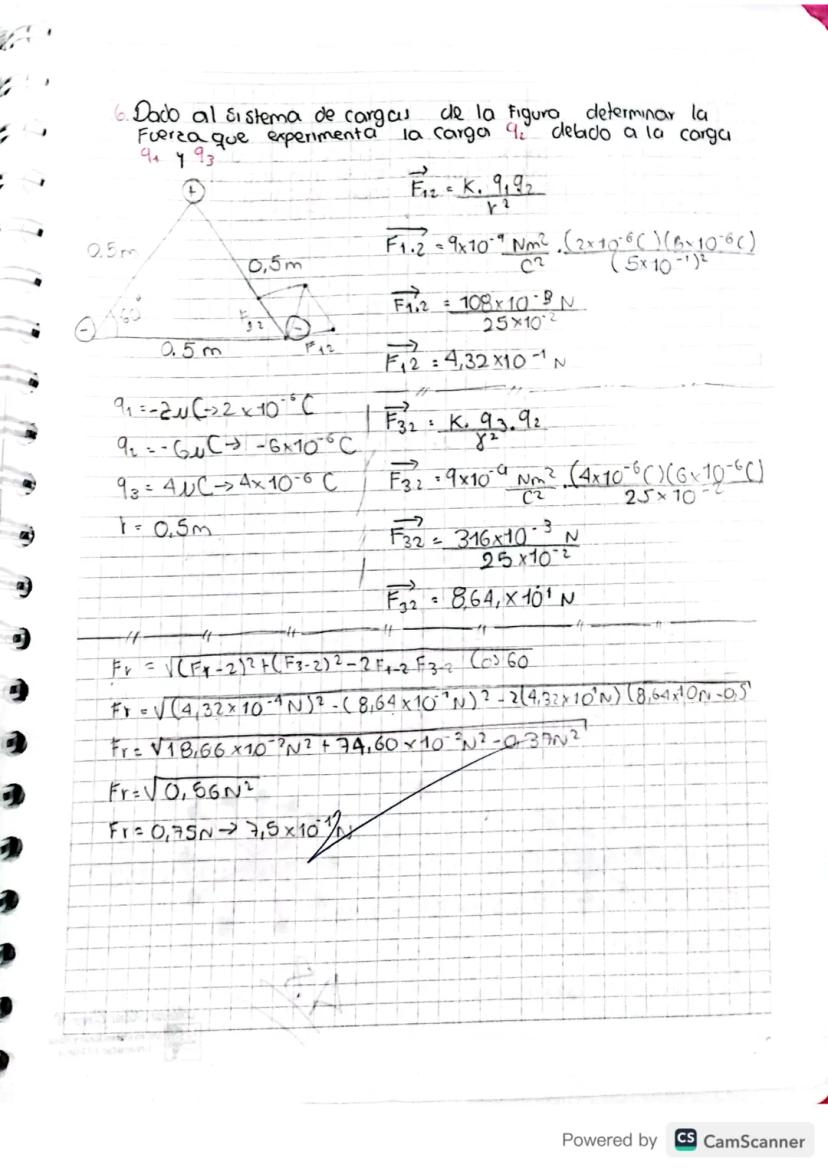 6. Dado al sistema de cargas de la Figura determinar la
Fuerza que experimenta la carga q₂ debido a la carga
q₁ y q₃
+
0.5m
0,5m
60°
F₃₂
-
-
0.5m
F₁₂
F₁₂ = K. q₁q₂ / r²
F₁.₂ = 9x10⁻⁹ Nm²/C² . (2x10⁻⁶C)(6x10⁻⁶C) / (5x10⁻¹)²
F₁.₂ = 108x10⁻³ N / 25x10⁻²
F₁₂ = 4,32x10⁻¹ N
q₁ = -2μC → 2x10⁻⁶C
q₂ = -6μC → -6x10⁻⁶C
q₃ = 4μC → 4x10⁻⁶ C
r = 0,5m
F₃₂ = K. q₃.q₂ / r²
F₃₂ = 9x10⁻⁹ Nm²/C² . (4x10⁻⁶C)(6x10⁻⁶C) / 25x10⁻²
F₃₂ = 316x10⁻³ N / 25x10⁻²
F₃₂ = 864,x10¹ N
Fr = √(F₁-2)²+(F3-2)²-2F₁-₂ F₃-₂ Cos 60
Fr = √(4,32x10⁻¹N)² - (8,64x10⁻¹N)² - 2(4,32x10¹N)(8,64x10N-0,5
Fr = √18,66x10⁻²N² + 74,60x10⁻²N² - 0,37N²
Fr = √0,56N²
Fr = 0,75N → 7,5x10⁻¹N
Powered by CS CamScanner